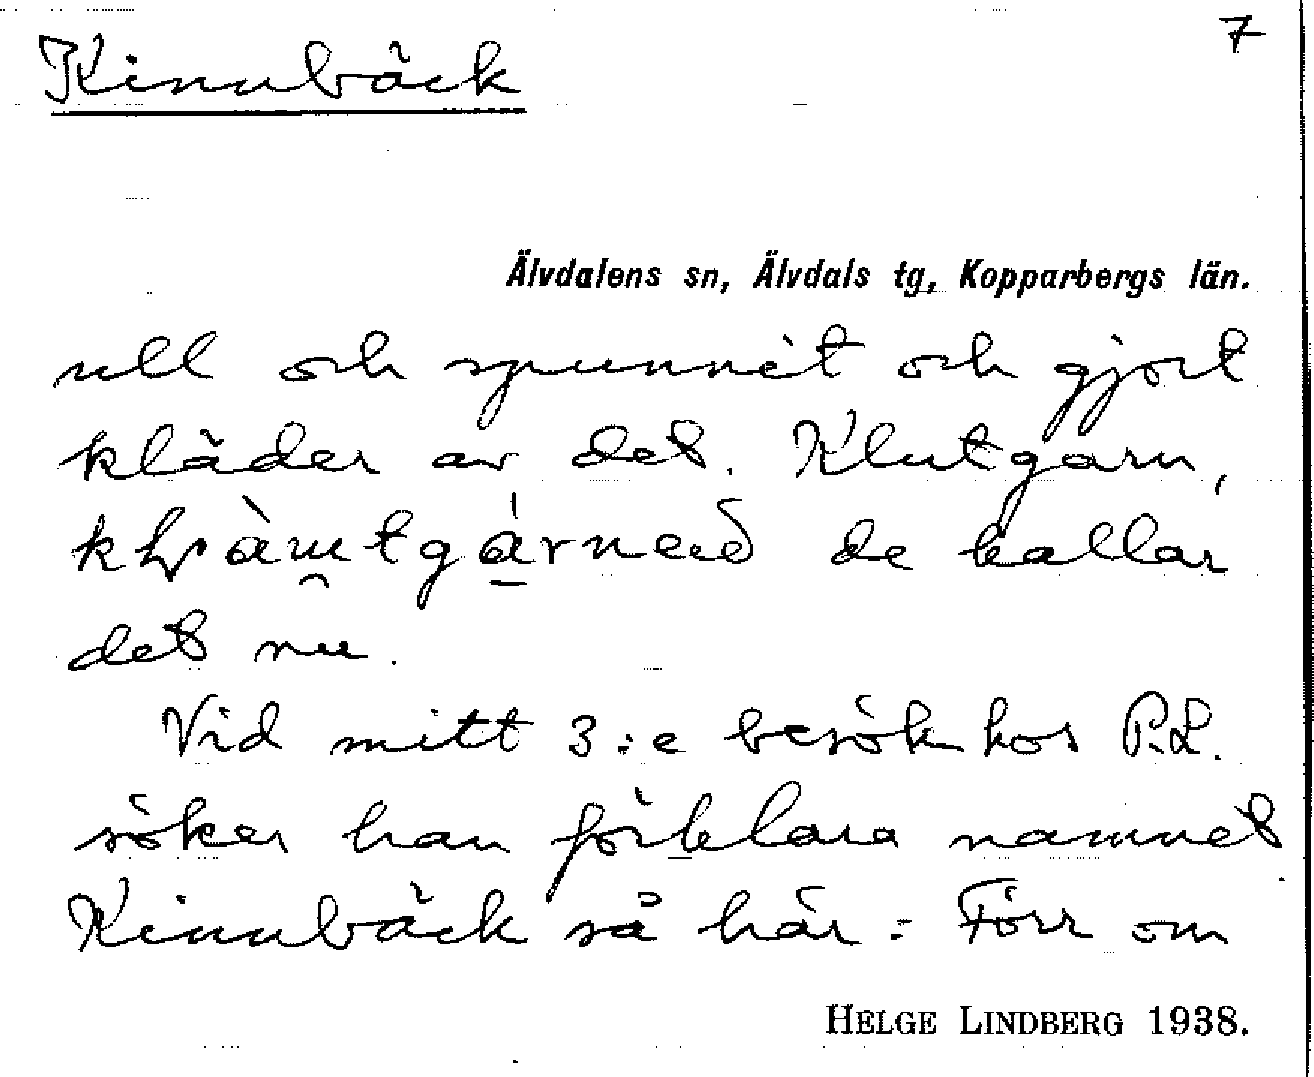 7
Kinnbäck
Älvdalens sn, Älvdals tg, Kopparbergs län.
ull och spunnit och gjort
kläder av det. Klutgarn,
de kallar
det nu.
Vid mitt 3:e besök hos P.L.
söker han förklara namnet
Kinnbäck så här: Förr om
HELGE LINDBERG 1938.